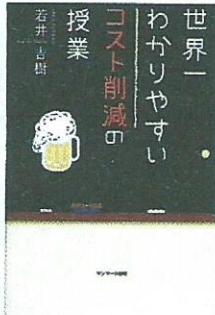 世界一
わかりやすい
コスト削減の
授業
若井吉樹
サンマーク出版